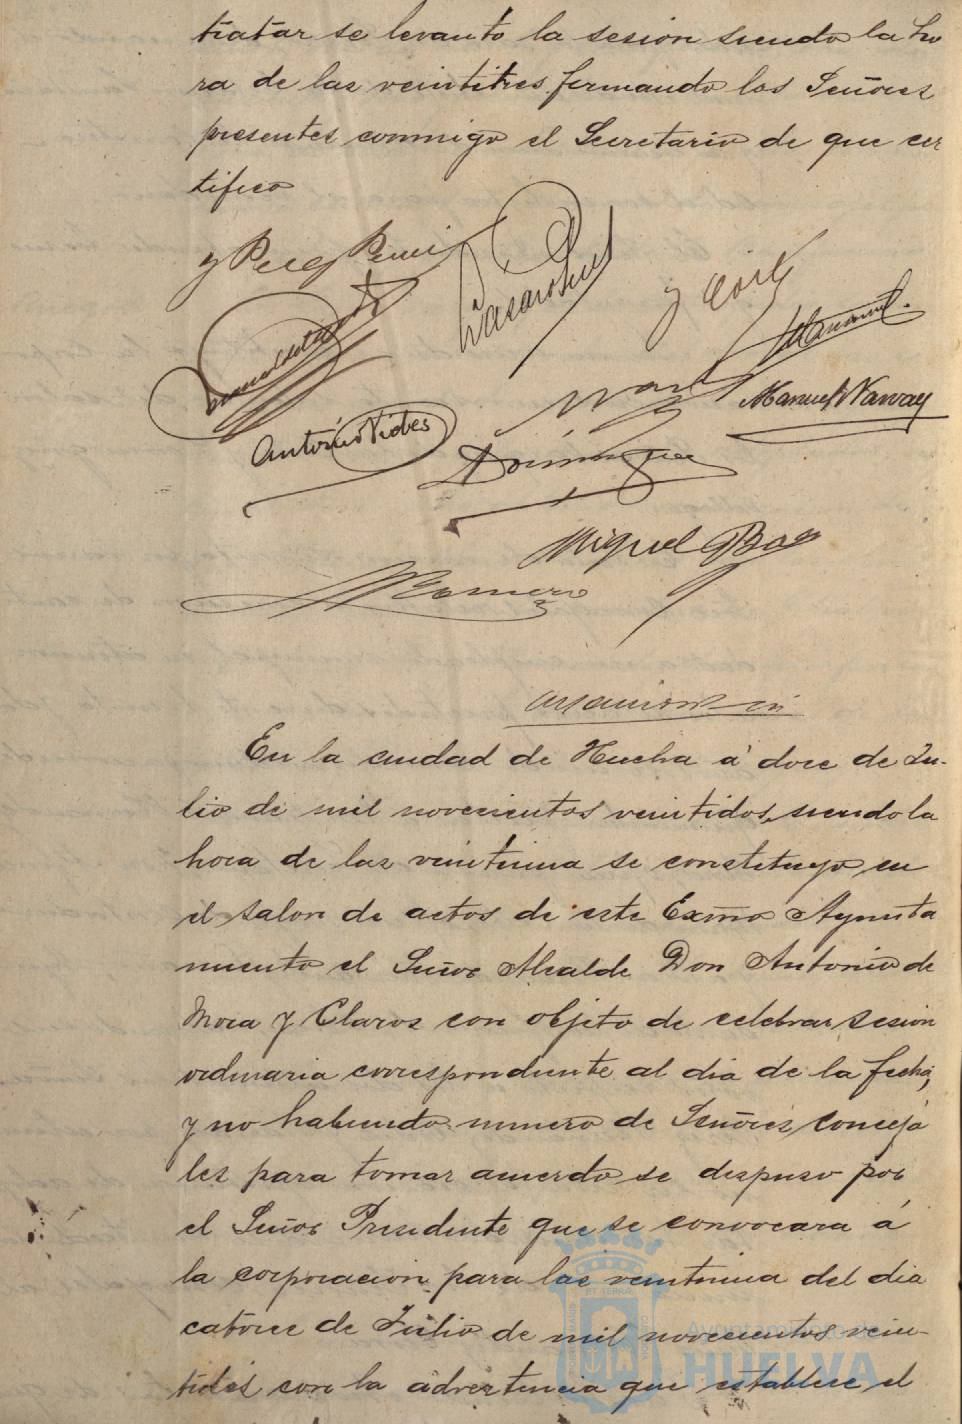 tratar se levanto la sesion siendo la ho
ra de las veintitres firmando los Señores
presentes conmigo el Secretario de que cer
tifico
y
y
Antonio Vides
Manuel Narvaez
Dominguez
Miguel Baez
Romero
En la ciudad de Huelva á doce de Ju-
lio de mil novecientos veintidos, siendo la
hora de las veintiuna se constituyo en
el salon de actos de este Exmo Ayunta
miento el Señor Alcalde Don Antonio de
Mora y Claros con objeto de celebrar sesion
ordinaria correspondiente al dia de la fecha,
y no habiendo numero de Señores conceja
les para tomar acuerdo se dispuso por
el Señor Presidente que se convocara á
la corporacion para las veintiuna del dia
catorce de Julio de mil novecientos vein-
tidós con la advertencia que establece el
Ayuntamiento de
HUELVA